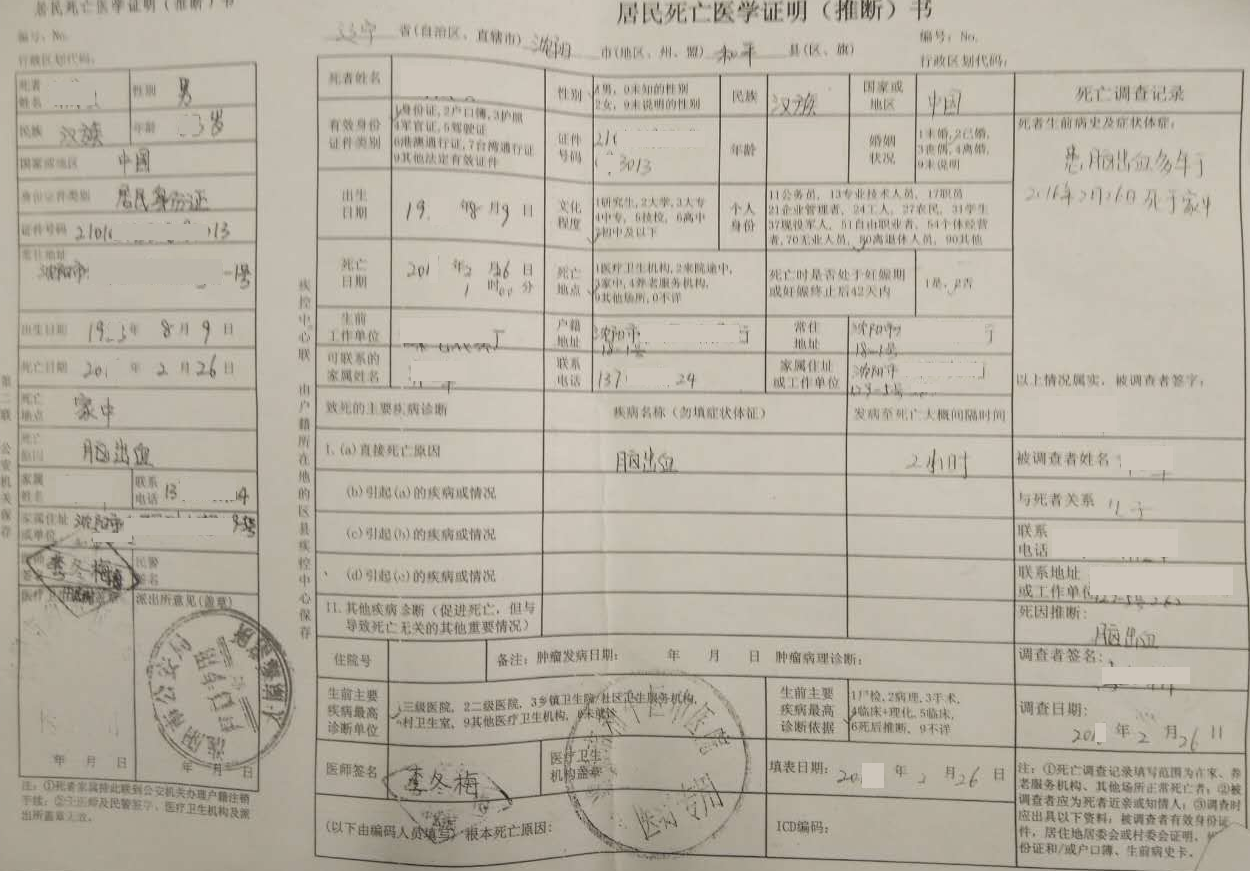 居民死亡医学证明（推断）书
编号：No.
行政区划代码：
死者
姓名
性别 男
民族 汉族 年龄 3岁
国家或地区 中国
身份证件类别 居民身份证
证件号码 2101 13
常住地址
沈阳市 -1号
出生日期 19 3年 8月9日
死亡日期 201 年2月26日
死亡
地点 家中
死亡
原因 脑出血
家属
姓名
联系
电话 13 4
家属住址
或单位 沈阳市
李冬梅
民警
签名
派出所意见(盖章)
年 月 日 年 月 日
注：①死者家属持此联到公安机关办理户籍注销
手续；②无医师及民警签字、医疗卫生机构及派
出所盖章无效。
第二联 公安机关保存
居民死亡医学证明（推断）书
辽宁 省(自治区、直辖市) 沈阳 市(地区、州、盟) 和平 县(区、旗)
编号：No.
行政区划代码：
死者姓名
性别
1男，0未知的性别
2女，9未说明的性别
民族 汉族
国家或
地区 中国
有效身份
证件类别
1身份证，2户口簿，3护照
4军官证，5驾驶证
6港澳通行证，7台湾通行证
9其他法定有效证件
证件
号码
210
3013
年龄
婚姻
状况
1未婚，2已婚，
3丧偶，4离婚，
9未说明
出生
日期 19 年8月9日
文化
程度
1研究生，2大学，3大专
4中专，5技校，6高中
7初中及以下
个人
身份
11公务员，13专业技术人员，17职员
21企业管理者，24工人，27农民，31学生
37现役军人，51自由职业者，54个体经营
者，70无业人员，80离退休人员，90其他
死亡
日期 201 年2月26日
1时00分
死亡
地点
1医疗卫生机构，2来院途中，
3家中，4养老服务机构，
9其他场所，0不详
死亡时是否处于妊娠期
或妊娠终止后42天内
1是，2否
生前
工作单位
户籍
地址 沈阳市
18-1号
常住
地址 沈阳市
18-1号
可联系的
家属姓名
联系
电话 137 24
家属住址
或工作单位 沈阳市
致死的主要疾病诊断 疾病名称（勿填症状体征） 发病至死亡大概间隔时间
I.(a)直接死亡原因 脑出血 2小时
(b)引起(a)的疾病或情况
(c)引起(b)的疾病或情况
(d)引起(c)的疾病或情况
II.其他疾病诊断（促进死亡，但与
导致死亡无关的其他重要情况）
住院号
备注：肿瘤发病日期： 年 月 日 肿瘤病理诊断：
生前主要
疾病最高
诊断单位
1三级医院，2二级医院，3乡镇卫生院/社区卫生服务机构，
4村卫生室，9其他医疗卫生机构，0未就诊
生前主要
疾病最高
诊断依据
1尸检，2病理，3手术，
4临床+理化，5临床，
6死后推断，9不详
医师签名 李冬梅
医疗卫生
机构盖章
医疗专用
填表日期：20 年2月26日
(以下由编码人员填写)根本死亡原因：
ICD编码：
疾控中心联 由户籍所在地的区县疾控中心保存
死亡调查记录
死者生前病史及症状体征：
患脑出血多年于
2016年2月26日死于家中
以上情况属实，被调查者签字：
被调查者姓名
与死者关系 儿子
联系
电话
联系地址
或工作单位
死因推断：
脑出血
调查者签名：
调查日期：
20 年2月26日
注：①死亡调查记录填写范围为在家、养
老服务机构、其他场所正常死亡者；②被
调查者应为死者近亲或知情人；③调查时
应出具以下资料：被调查者有效身份证
件，居住地居委会或村委会证明，
份证和/或户口簿、生前病史卡。